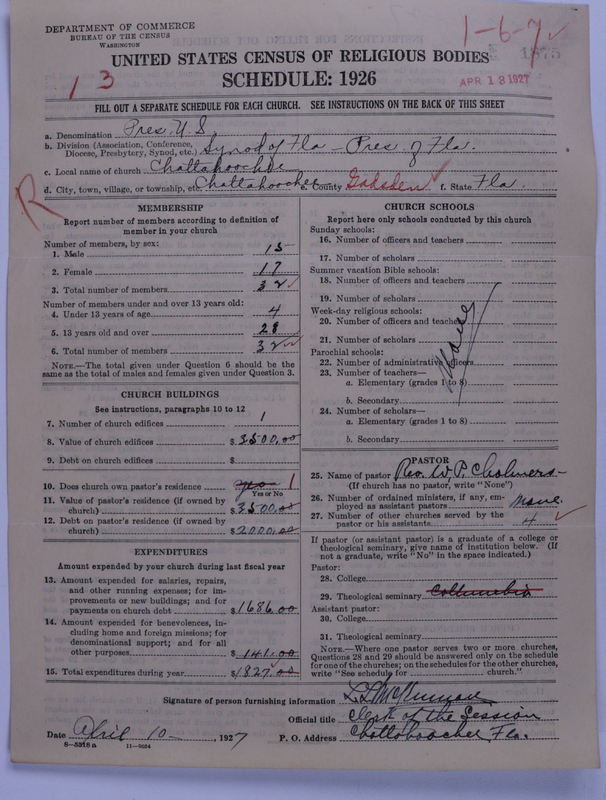 DEPARTMENT OF COMMERCE
BUREAU OF THE CENSUS
WASHINGTON
1-6-7
1875
UNITED STATES CENSUS OF RELIGIOUS BODIES
SCHEDULE: 1926
APR 18 1927
13
FILL OUT A SEPARATE SCHEDULE FOR EACH CHURCH. SEE INSTRUCTIONS ON THE BACK OF THIS SHEET
a. Denomination Pres. U.S
b. Division (Association, Conference, Diocese, Presbytery, Synod, etc.) Synod of Fla - Pres. of Fla.
c. Local name of church Chattahoochee
d. City, town, village, or township, etc. Chattahoochee e. County Gadsden f. State Fla.
R
MEMBERSHIP
Report number of members according to definition of
member in your church
Number of members, by sex:
1. Male 15
2. Female 17
3. Total number of members 32
Number of members under and over 13 years old:
4. Under 13 years of age 4
5. 13 years old and over 28
6. Total number of members 32
NOTE.—The total given under Question 6 should be
same as the total of males and females given under Question 3.
CHURCH BUILDINGS
See instructions, paragraphs 10 to 12
7. Number of church edifices 1
8. Value of church edifices $3500.00
9. Debt on church edifices $
10. Does church own pastor's residence yes 1
Yes or No
11. Value of pastor's residence (if owned by
church) $3500.00
12. Debt on pastor's residence (if owned by
church) $2000.00
EXPENDITURES
Amount expended by your church during last fiscal year
13. Amount expended for salaries, repairs,
and other running expenses; for im-
provements or new buildings; and for
payments on church debt $1686.00
14. Amount expended for benevolences, in-
cluding home and foreign missions; for
denominational support; and for all
other purposes $141.00
15. Total expenditures during year $1827.00
CHURCH SCHOOLS
Report here only schools conducted by this church
Sunday schools:
16. Number of officers and teachers
17. Number of scholars
Summer vacation Bible schools:
18. Number of officers and teachers
19. Number of scholars
Week-day religious schools:
20. Number of officers and teachers
21. Number of scholars
Parochial schools:
22. Number of administrative officers
23. Number of teachers—
a. Elementary (grades 1 to 8)
b. Secondary
24. Number of scholars—
a. Elementary (grades 1 to 8)
b. Secondary
None
PASTOR
25. Name of pastor Rev. W. P. Chalmers
(If church has no pastor, write "None")
26. Number of ordained ministers, if any, em-
ployed as assistant pastors none.
27. Number of other churches served by the
pastor or his assistants 4
If pastor (or assistant pastor) is a graduate of a college or
theological seminary, give name of institution below. (If
not a graduate, write "No" in the space indicated.)
Pastor:
28. College
29. Theological seminary Collumbia
Assistant pastor:
30. College
31. Theological seminary
NOTE.—Where one pastor serves two or more churches,
Questions 28 and 29 should be answered only on the schedule
for one of the churches; on the schedules for the other churches,
write "See schedule for church."
Signature of person furnishing information
Official title Clerk of the Session
Date April 10 -, 1927 P. O. Address Chattahoochee, Fla.
8—5518 a 11—9624